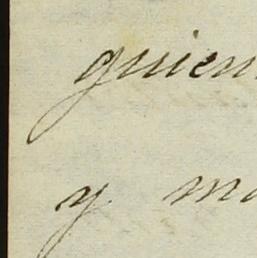 guien
y. ma